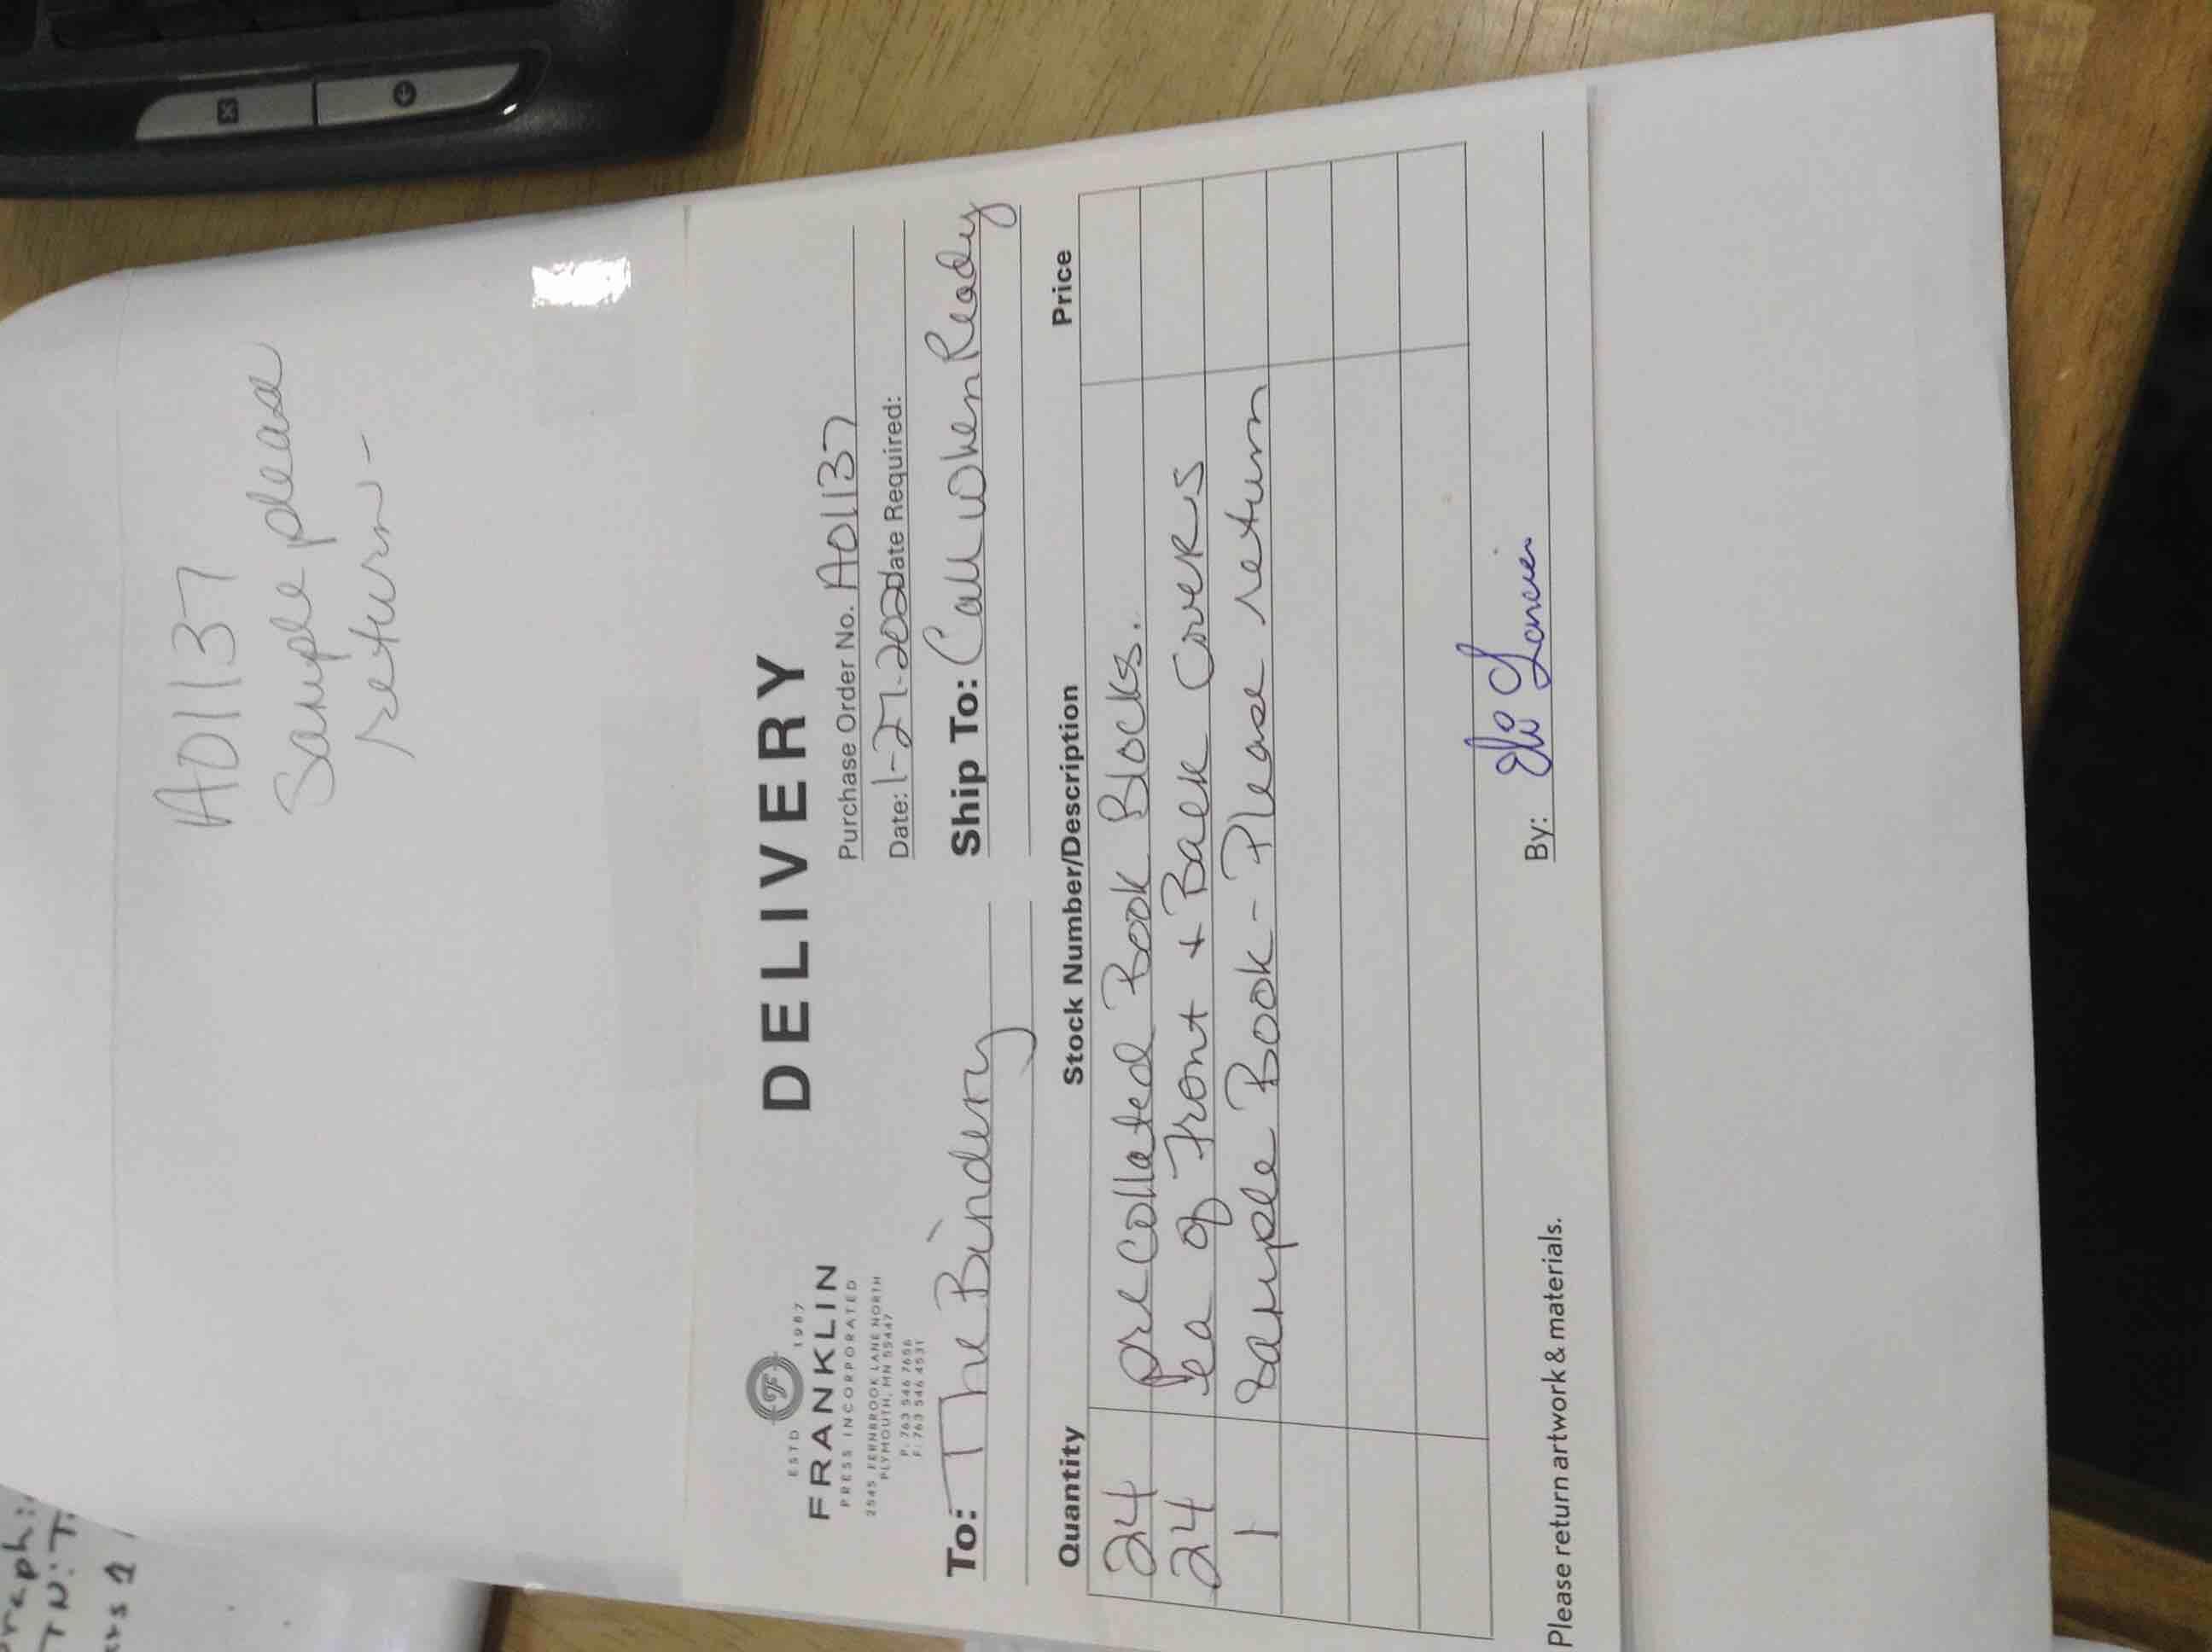 A01137
Sample please
return -
ESTD 1987
F
FRANKLIN
PRESS INCORPORATED
2545 FERNBROOK LANE NORTH
PLYMOUTH, MN 55447
P: 763 546 7656
F: 763 546 4531
DELIVERY
Purchase Order No. A01137
Date: 1-27-2020 Date Required:
To: The Bindery
Ship To: Call when Ready
Quantity Stock Number/Description Price
24 pre Collated Book Blocks.
24 ea of Front + Back Covers
1 Sample Book - Please return
Please return artwork & materials.
By:
raph:
TN: T